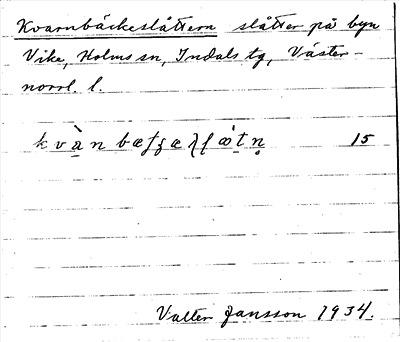 Kvarnbäckeslåttern slåtter på byn
Vike, Holms sn, Indals tg, Väster-
norrl. l.
15
Valter Jansson 1934.